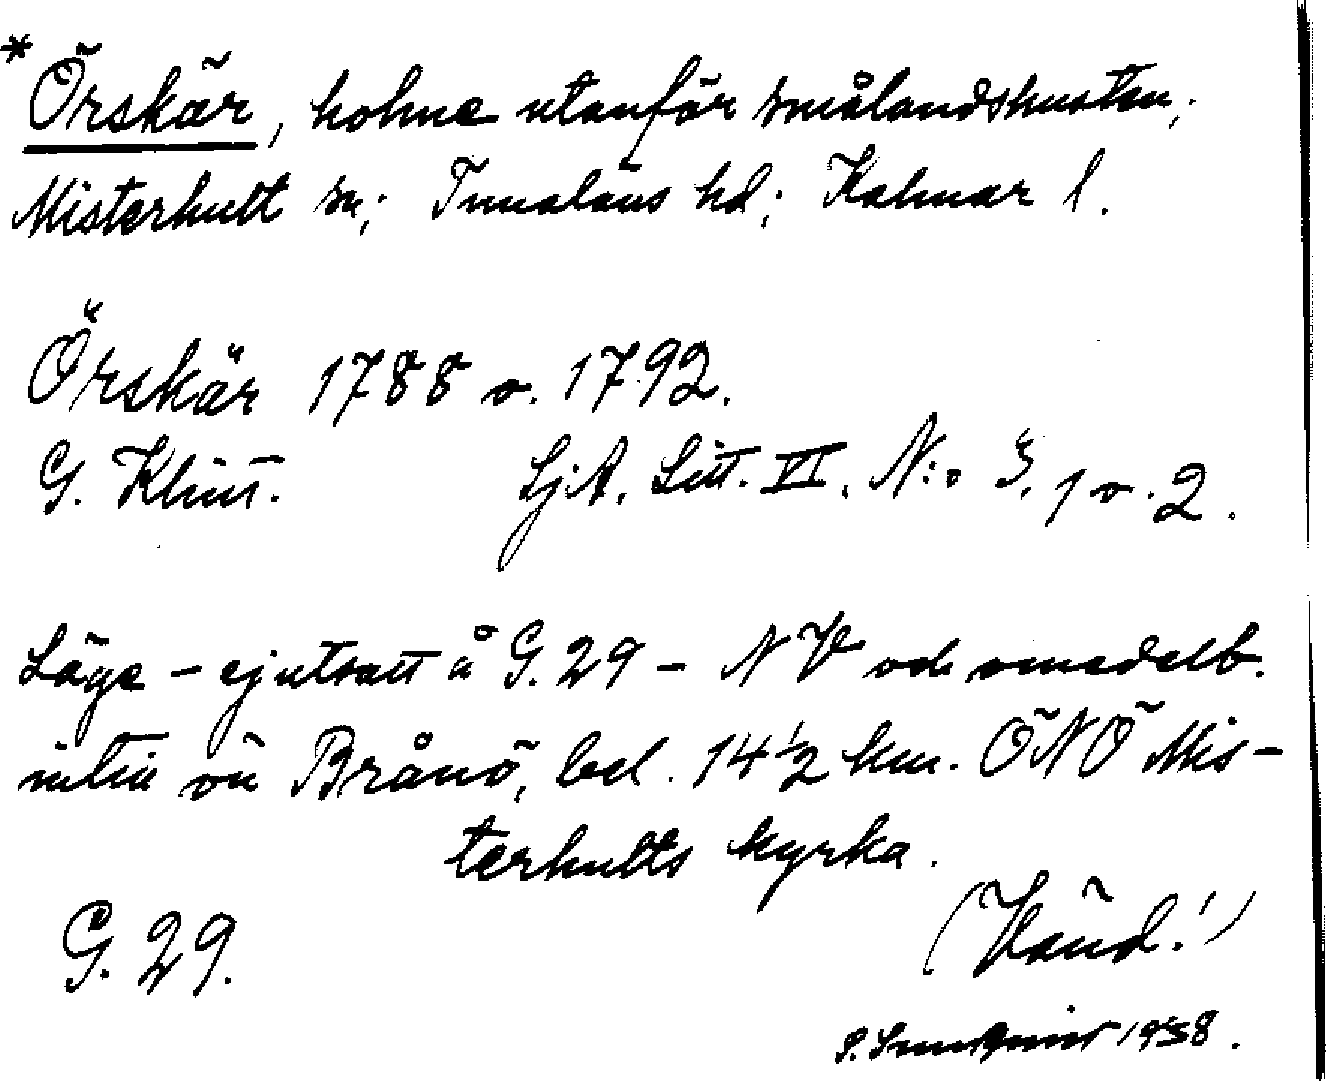 * Örskär, holme utanför smålandskusten,
Misterhult sn; Tunaläns hd; Kalmar l.
Örskär 1788 o. 1792.
G. Klint. SjA. Litt. VI. N:o 3, 1 o. 2.
Läge – ej utsatt å G. 29 – NV och omedelb.
intill ön Brånö, bel. 14 1/2 km. ÖNÖ Mis-
terhults kyrka.
G. 29. (Vänd!)
1938.